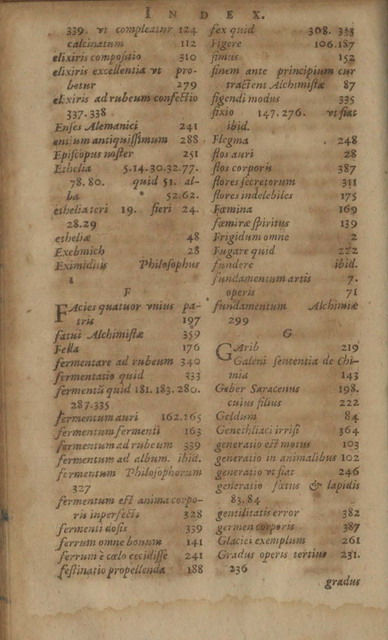 INDEX.
339. vt compleatur 124
calcinatum 112
elixiris compositio 310
elixiris excellentia vt pro-
betur 279
elixiris ad rubeum confectio
337.338.
Enses Alemanici 241
entium antiquissimum 288
Episcopus noster 251
Ethelia 5.14.30.32.77.
78.80. quid 51. al-
ba 52.62.
ethelia teri 19. fieri 24.
28.29
etheliæ 48
Exebmich 28
Eximidius Philosophus
F
FAcies quatuor vnius pa-
tris 197
fatui Alchimistæ 359
Fella 176
fermentare ad rubeum 340
fermentatio quid 333
fermentũ quid 181.183.280.
287.335
fermentum auri 162.165
fermentum fermenti 163
fermentum ad rubeum 339
fermentum ad album. ibid.
fermentum Philosophorum
327
fermentum est anima corpo-
ris inperfecti 328
fermenti dosis 339
ferrum omne bonum 141
ferrum è cœlo cecidisse 241
festinatio propellenda 188
fex quid 308. 333
Figere 106.187
fimus 152
finem ante principium cur
tractent Alchimistæ 87
figendi modus 335
fixio 147.276. vt fiat
ibid.
Flegma 248
flos auri 28
flos corporis 387
flores secretorum 311
flores indelebiles 175
Fœmina 169
fœminæ spiritus 139
Frigidum omne 2
Fugare quid 222
fundere ibid.
fundamentum artis 7.
operis 71
fundamentum Alchimiæ
299
G
GArib 219
Galeni sententia de Chi-
mia 143
Geber Saracenus 198.
cuius filius 222
Geldum 84
Genethliaci irrisi 364
generatio est motus 103
generatio in animalibus 102
generatio vt fiat 246
generatio fœtus & lapidis
83.84
gentilitatis error 382
germen corporis 387
Glaciei exemplum 261
Gradus operis tertius 231.
236
gradus